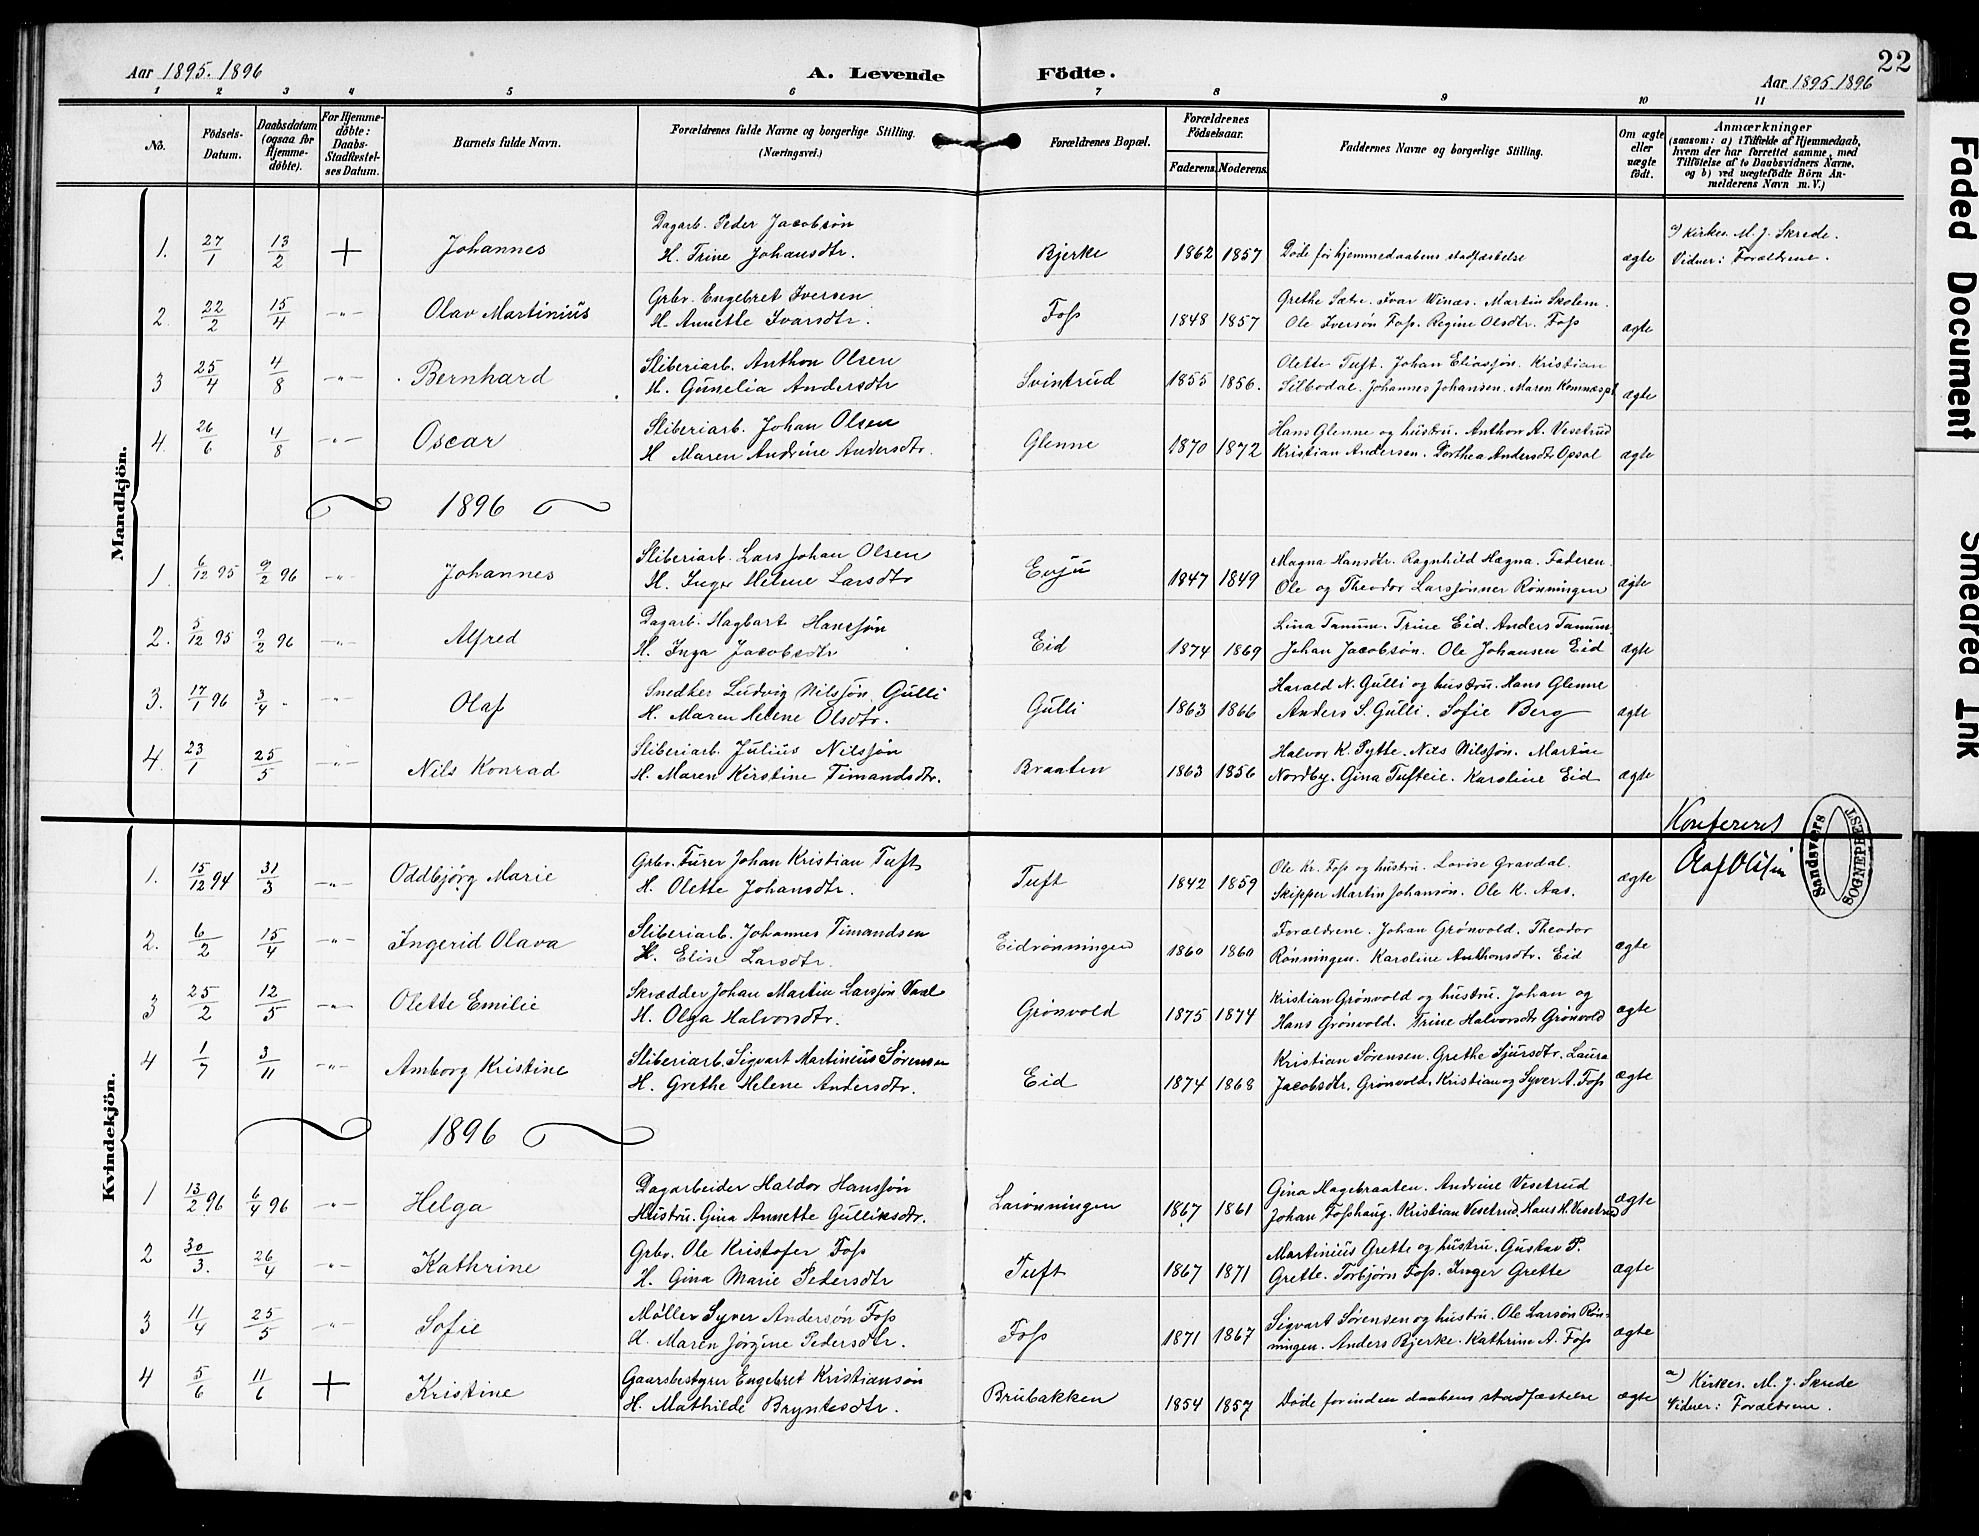 22
Aar 1895. 1896 A. Levende Födte. Aar 1895. 1896
1 2 3 4 5 6 7 8 9 10 11
No. Födsels-Datum. Daabsdatum (ogsaa for Hjemmedöbte). For Hjemmedöbte: Daabs-Stadfæstelses Datum. Barnets fulde Navn. Forældrenes fulde Navne og borgerlige Stilling. (Næringsvei.) Forældrenes Bopæl. Forældrenes Födselsaar. Faderens. Moderens. Faddernes Navne og borgerlige Stilling. Om ægte eller uægte födt. Anmærkninger (saasom: a) i Tilfælde af Hjemmedaab, hvem der har forrettet samme, med Tilföielse af to Daabsvidners Navne, og b) ved uægtefödte Börn Anmelderens Navn m. V.)
Mandkjön.
Dagarb. Peder Jacobsön a) Kirkes. M. J. Skrede.
1. 27/1 13/2 + Johannes H. Trine Johansdtr. Bjerke 1862 1857 Döde för hjemmedaabens stadfæstelse ægte Vidner: Forældrene.
Grbr. Engebret Iversen Grethe Sætre. Ivar Winæs. Martin Skolem.
2. 22/2 15/4 -"- Olav Martinius H. Annette Ivarsdtr. Foss 1848 1857 Ole Iversön Foss. Regine Olsdtr. Foss ægte
Sliberiarb. Anthon Olsen Olette Tuft. Johan Eliassön. Kristian
3 25/4 4/8 -"- Bernhard H. Gunelia Andersdtr Svintrud 1855 1856. Silbodal. Johannes Johansen. Maren Komnæspl. ægte
Sliberiarb. Johan Olsen Hans Glenne og hustru. Anthon A. Vesetrud
4. 26/6 4/8 -"- Oscar H Maren Andrine Andersdtr. Glenne 1870 1872 Kristian Andersen. Dorthea Andersdtr Opsal ægte
1896
Sliberiarb. Lars Johan Olsen Magna Hansdtr. Ragnhild Hægna. Faderen.
1. 6/12 95 9/2 96 -"- Johannes H. Inger Helene Larsdtr Evju 1847 1849 Ole og Theodor Larssönner Rönningen ægte
Dagarb. Hagbart Hanssön Lina Tanum. Trine Eid. Anders Tanum.
2. 5/12 95 9/2 96 -"- Alfred H. Inga Jacobsdtr Eid 1874 1869 Johan Jacobsön. Ole Johansen Eid ægte
Snedker Ludvig Nilssön Gulli Harald N. Gulli og hustru. Hans Glenne
3. 17/1 96 3/4 - -"- Olaf H. Maren Helene Olsdtr. Gulli 1863 1866 Anders S. Gulli. Sofie Berg ægte
Sliberiarb. Julius Nilssön Halvor K. Pytte. Nils Nilssön. Martine
4. 23/1 25/5 -"- Nils Konrad H. Maren Kirstine Timandsdtr. Braaten 1863 1856 Nordby. Gina Tufteie. Karoline Eid ægte
Konfereret
Olaf Olssen
Sandsværs SOGNEPREST
Kvindekjön.
Grbr. Furer Johan Kristian Tuft Ole Kr. Foss og hustru. Lovise Gravdal.
1. 15/12 94 31/3 -"- Oddbjörg Marie H. Olette Johansdtr. Tuft 1842 1859 Skipper Martin Johansön. Ole K. Aas. ægte
Sliberiarb. Johannes Timandsen Forældrene. Johan Grönvold. Theodor
2. 6/2 15/4 -"- Ingerid Olava H. Elise Larsdtr. Eidrönningen 1860 1860 Rönningen. Karoline Anthonsdtr. Eid ægte
Skrædder Johan Martin Larssön Kristian Grönvold og hustru. Johan og
3 25/2 12/5 -"- Olette Emilie H. Olga Halvorsdtr. Grönvold 1875 1874 Hans Grönvold. Trine Halvorsdtr Grönvold ægte
Sliberiarb. Sigvart Martinius Sörensen Kristian Sörensen. Grethe Sjursdtr. Laura
4 1/7 3/11 -"- Amborg Kristine H. Grethe Helene Andersdtr. Eid 1874 1868 Jacobsdtr. Grönvold. Kristian og Syver A. Foss ægte
1896
Dagarbeider Haldor Hanssön Gina Hagebraaten. Andrine Vesetrud
1 13/2 96 6/4 96 -"- Helga Hustru. Gina Annette Gulliksdtr. Larönningen 1867 1861 Johan Fosshaug. Kristian Vesetrud. Hans H. Vesetrud ægte
Grbr. Ole Kristofer Foss Martinius Grette og hustru. Gustav P.
2 30/3. 26/4 -"- Kathrine H. Gina Marie Pedersdtr Tuft 1867 1871 Grette. Torbjörn Foss. Inger Grette ægte
Möller Syver Andersön Foss Sigvart Sörensen og hustru. Ole Larsön Rön-
3 11/4 25/5 -"- Sofie H. Maren Jörgine Pedersdtr. Foss 1871 1867 ningen. Anders Bjerke. Kathrine A. Foss ægte
Gaarsbestyrer Engebret Kristiansön a) Kirkes. M. J. Skrede
4 5/6 11/6 + Kristine H. Mathilde Bryntesdtr. Brubakken 1854 1857 Döde forinden daabens stadfæstelse ægte Vidner: Forældrene.
Faded Document
Smeared Ink